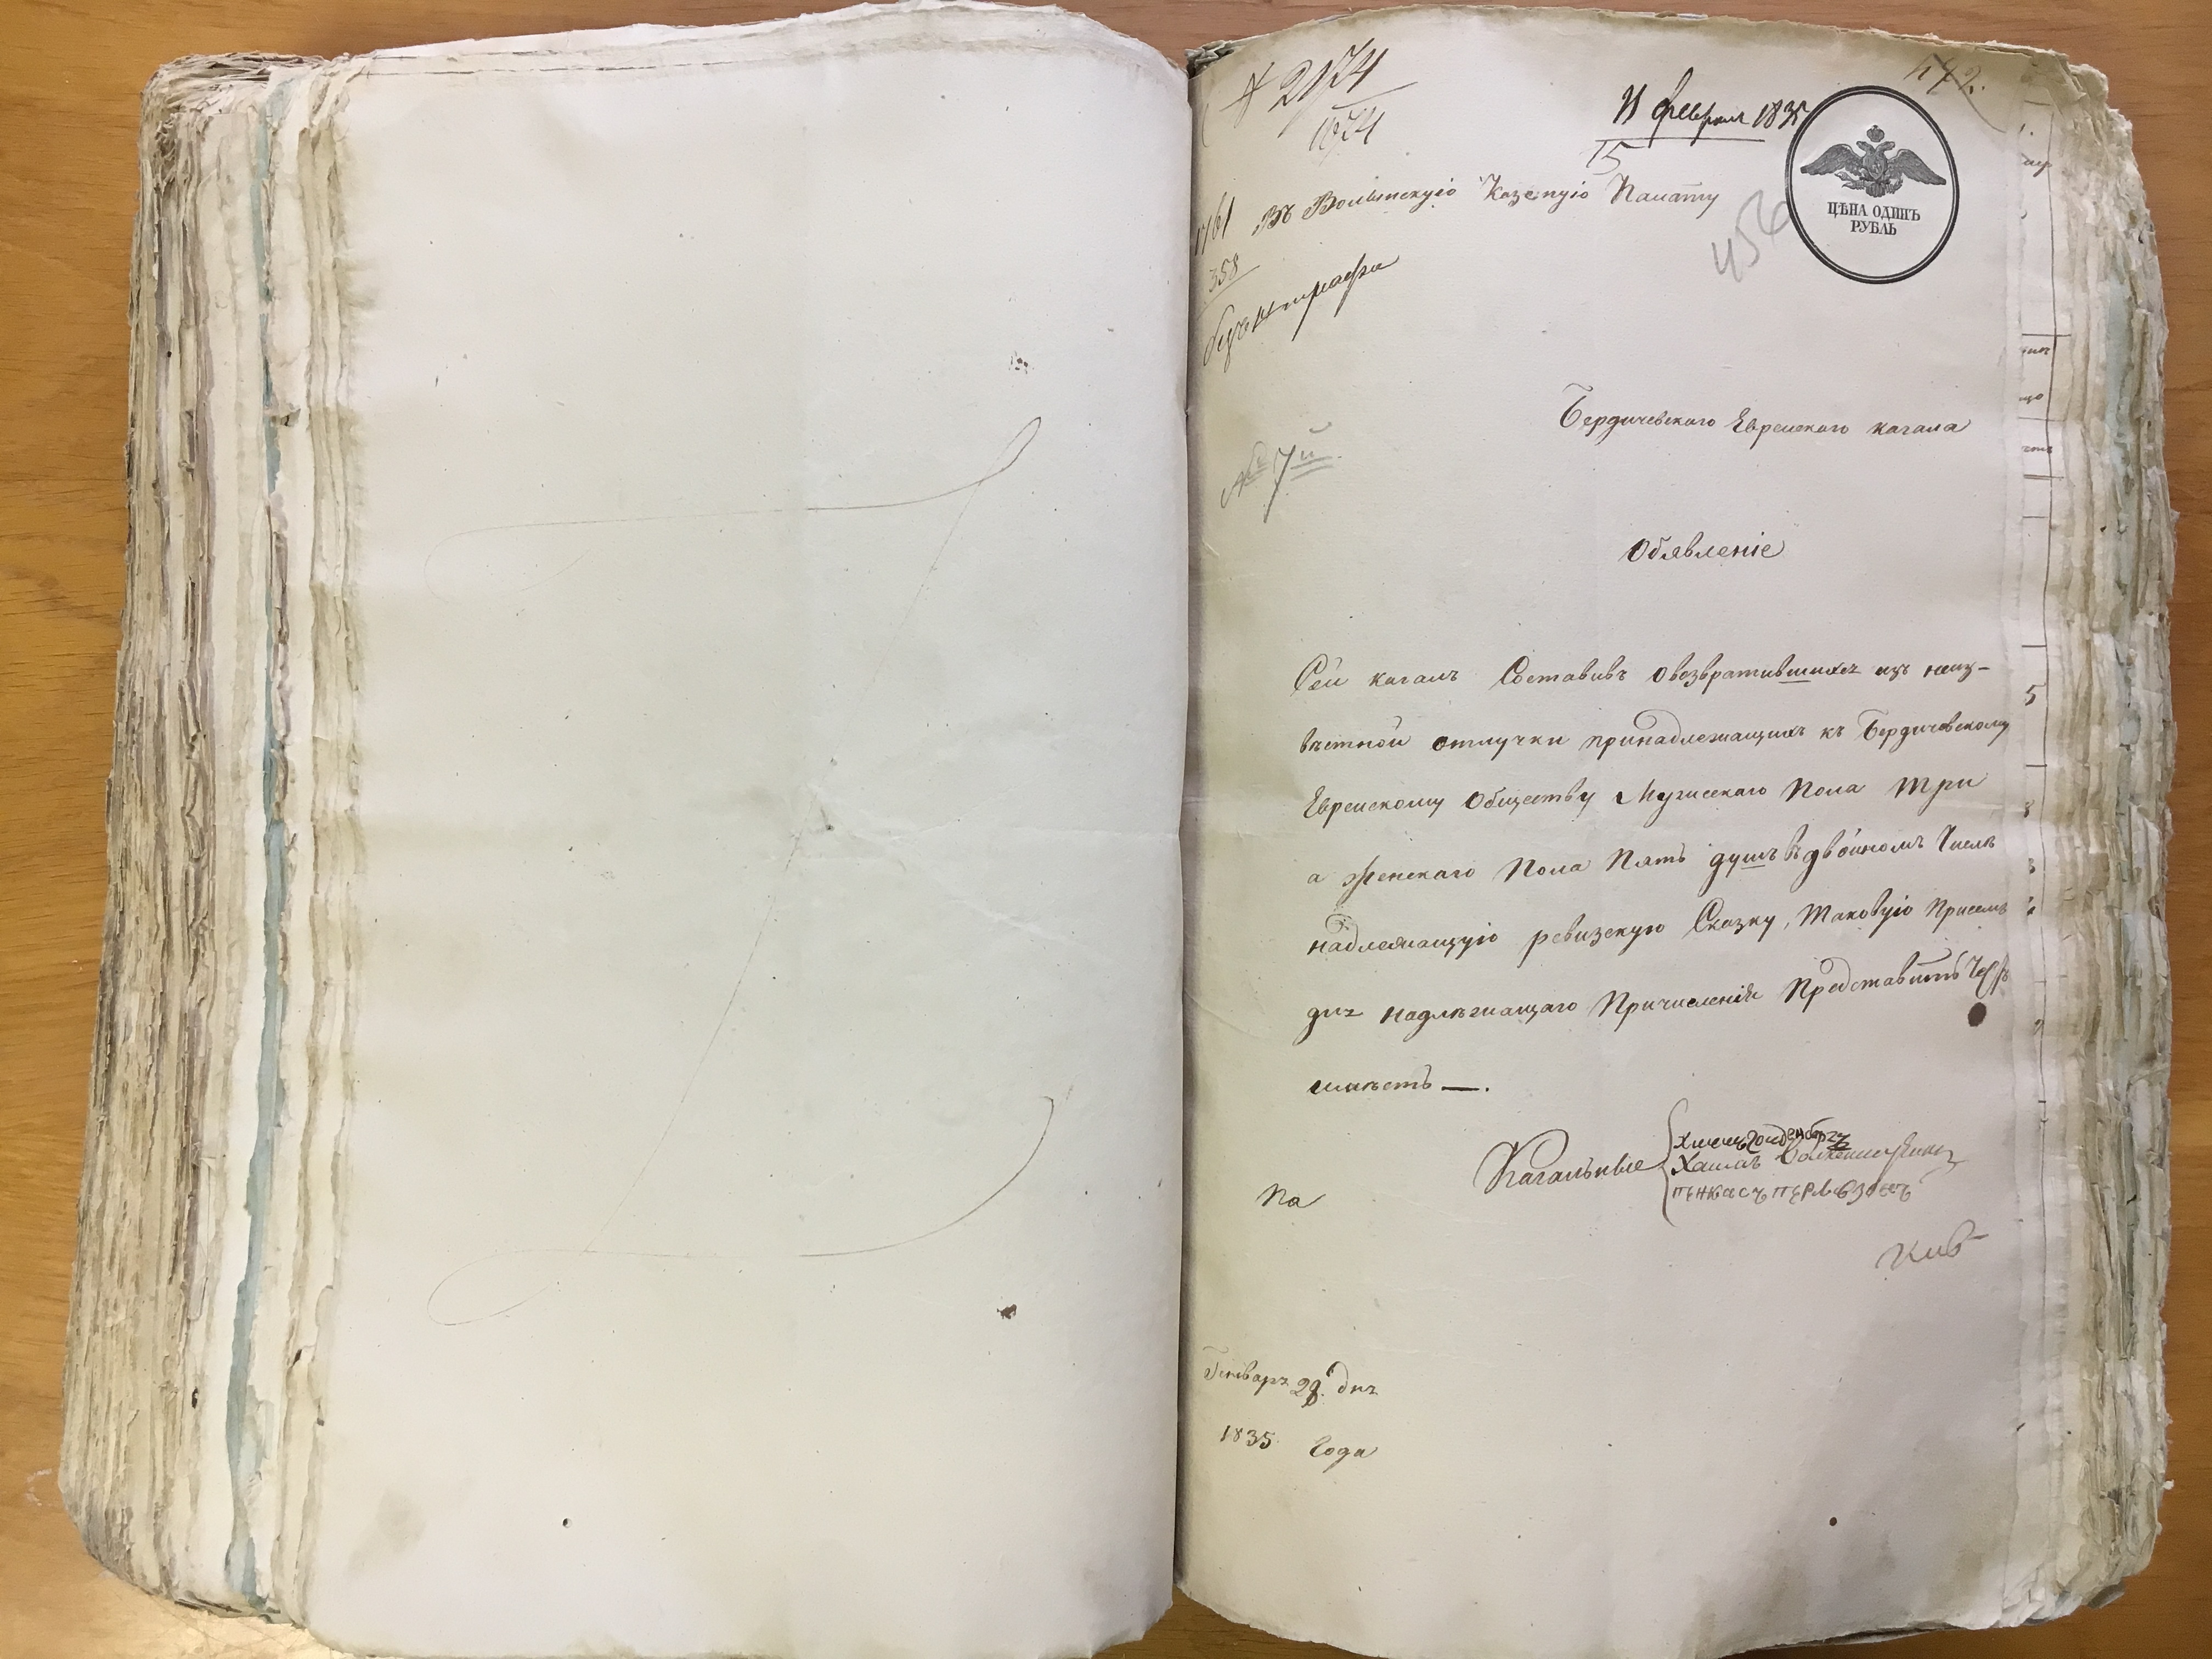 № 2174
1674
11 февраля 1835
15
442.
ЦѢНА ОДИНЪ
РУБЛЬ
456
Въ Волынскую Казеную Палату
358
№ 7й.
Бердичевскаго Еврейскаго кагала
Обявленіе
Сей кагалъ Составивъ о возвратившихся изъ неиз-
вѣстной отлучки принадлежащихъ къ Бердичевскому
Еврейскому Обществу Мужескаго Пола три
а Женскаго Пола Пять душъ въ двойномъ Числѣ
надлежащую ревизскую Сказку, таковую Присемъ
для надлѣжащаго Причисленія Представить Честь
имѣетъ —.
Кагальные
Хаимъ
пѣнкасъ
На
Генваря 28. дня
1835 Года